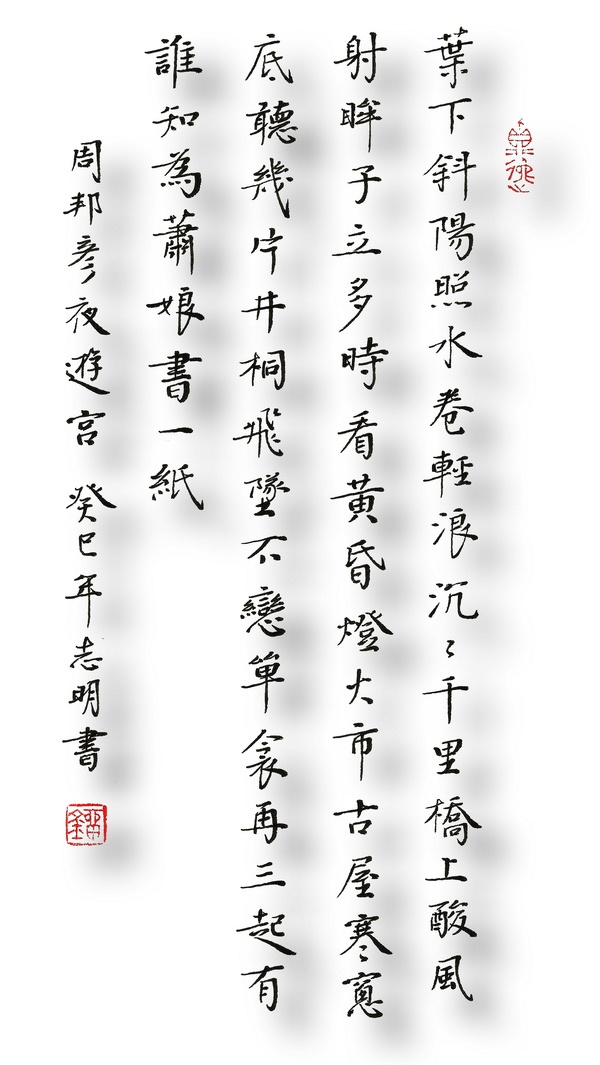 葉下斜陽照水卷輕浪沉〻千里橋上酸風
射眸子立多時看黃昏燈火市古屋寒窻
底聽幾片井桐飛墜不戀單衾再三起有
誰知為蕭娘書一紙
周邦彥夜遊宮 癸巳年志明書